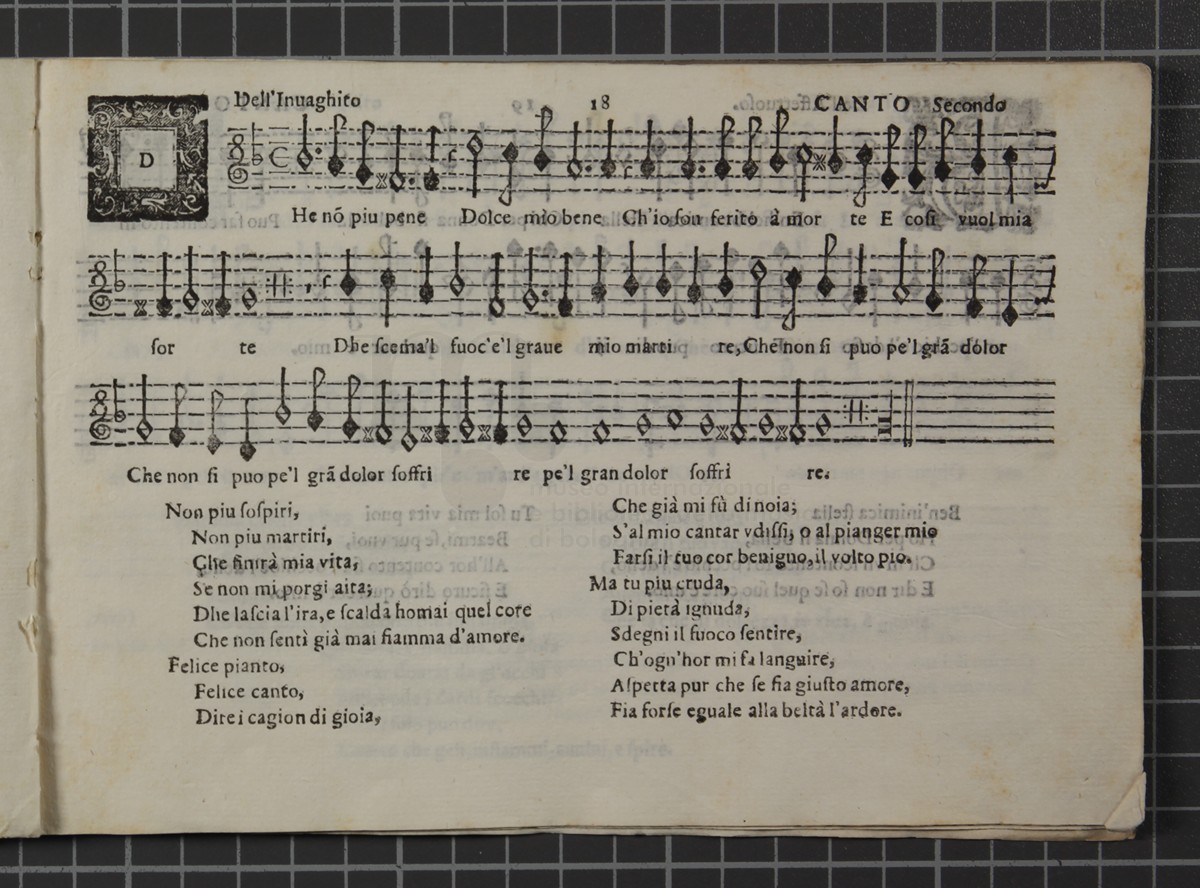 Dell'Inuaghito 18 CANTO Secondo
D
He nõ piu pene Dolce mio bene Ch'io son ferito à mor te E cosi vuol mia
sor te Dhe scema'l fuoc'e'l graue mio marti re, Che non si puo pe'l grã dolor
Che non si puo pe'l grã dolor soffri re pe'l gran dolor soffri re.
Non piu sospiri,
Non piu martiri,
Che finirà mia vita,
Se non mi porgi aita;
Dhe lascia l'ira, e scalda homai quel core
Che non sentì già mai fiamma d'amore.
Felice pianto,
Felice canto,
Direi cagion di gioia,
Che già mi fù di noia;
S'al mio cantar vdissi, o al pianger mio
Farsi il tuo cor benigno, il volto pio.
Ma tu piu cruda,
Di pietà ignuda,
Sdegni il fuoco sentire,
Ch'ogn'hor mi fa languire,
Aspetta pur che se fia giusto amore,
Fia forse eguale alla beltà l'ardore.